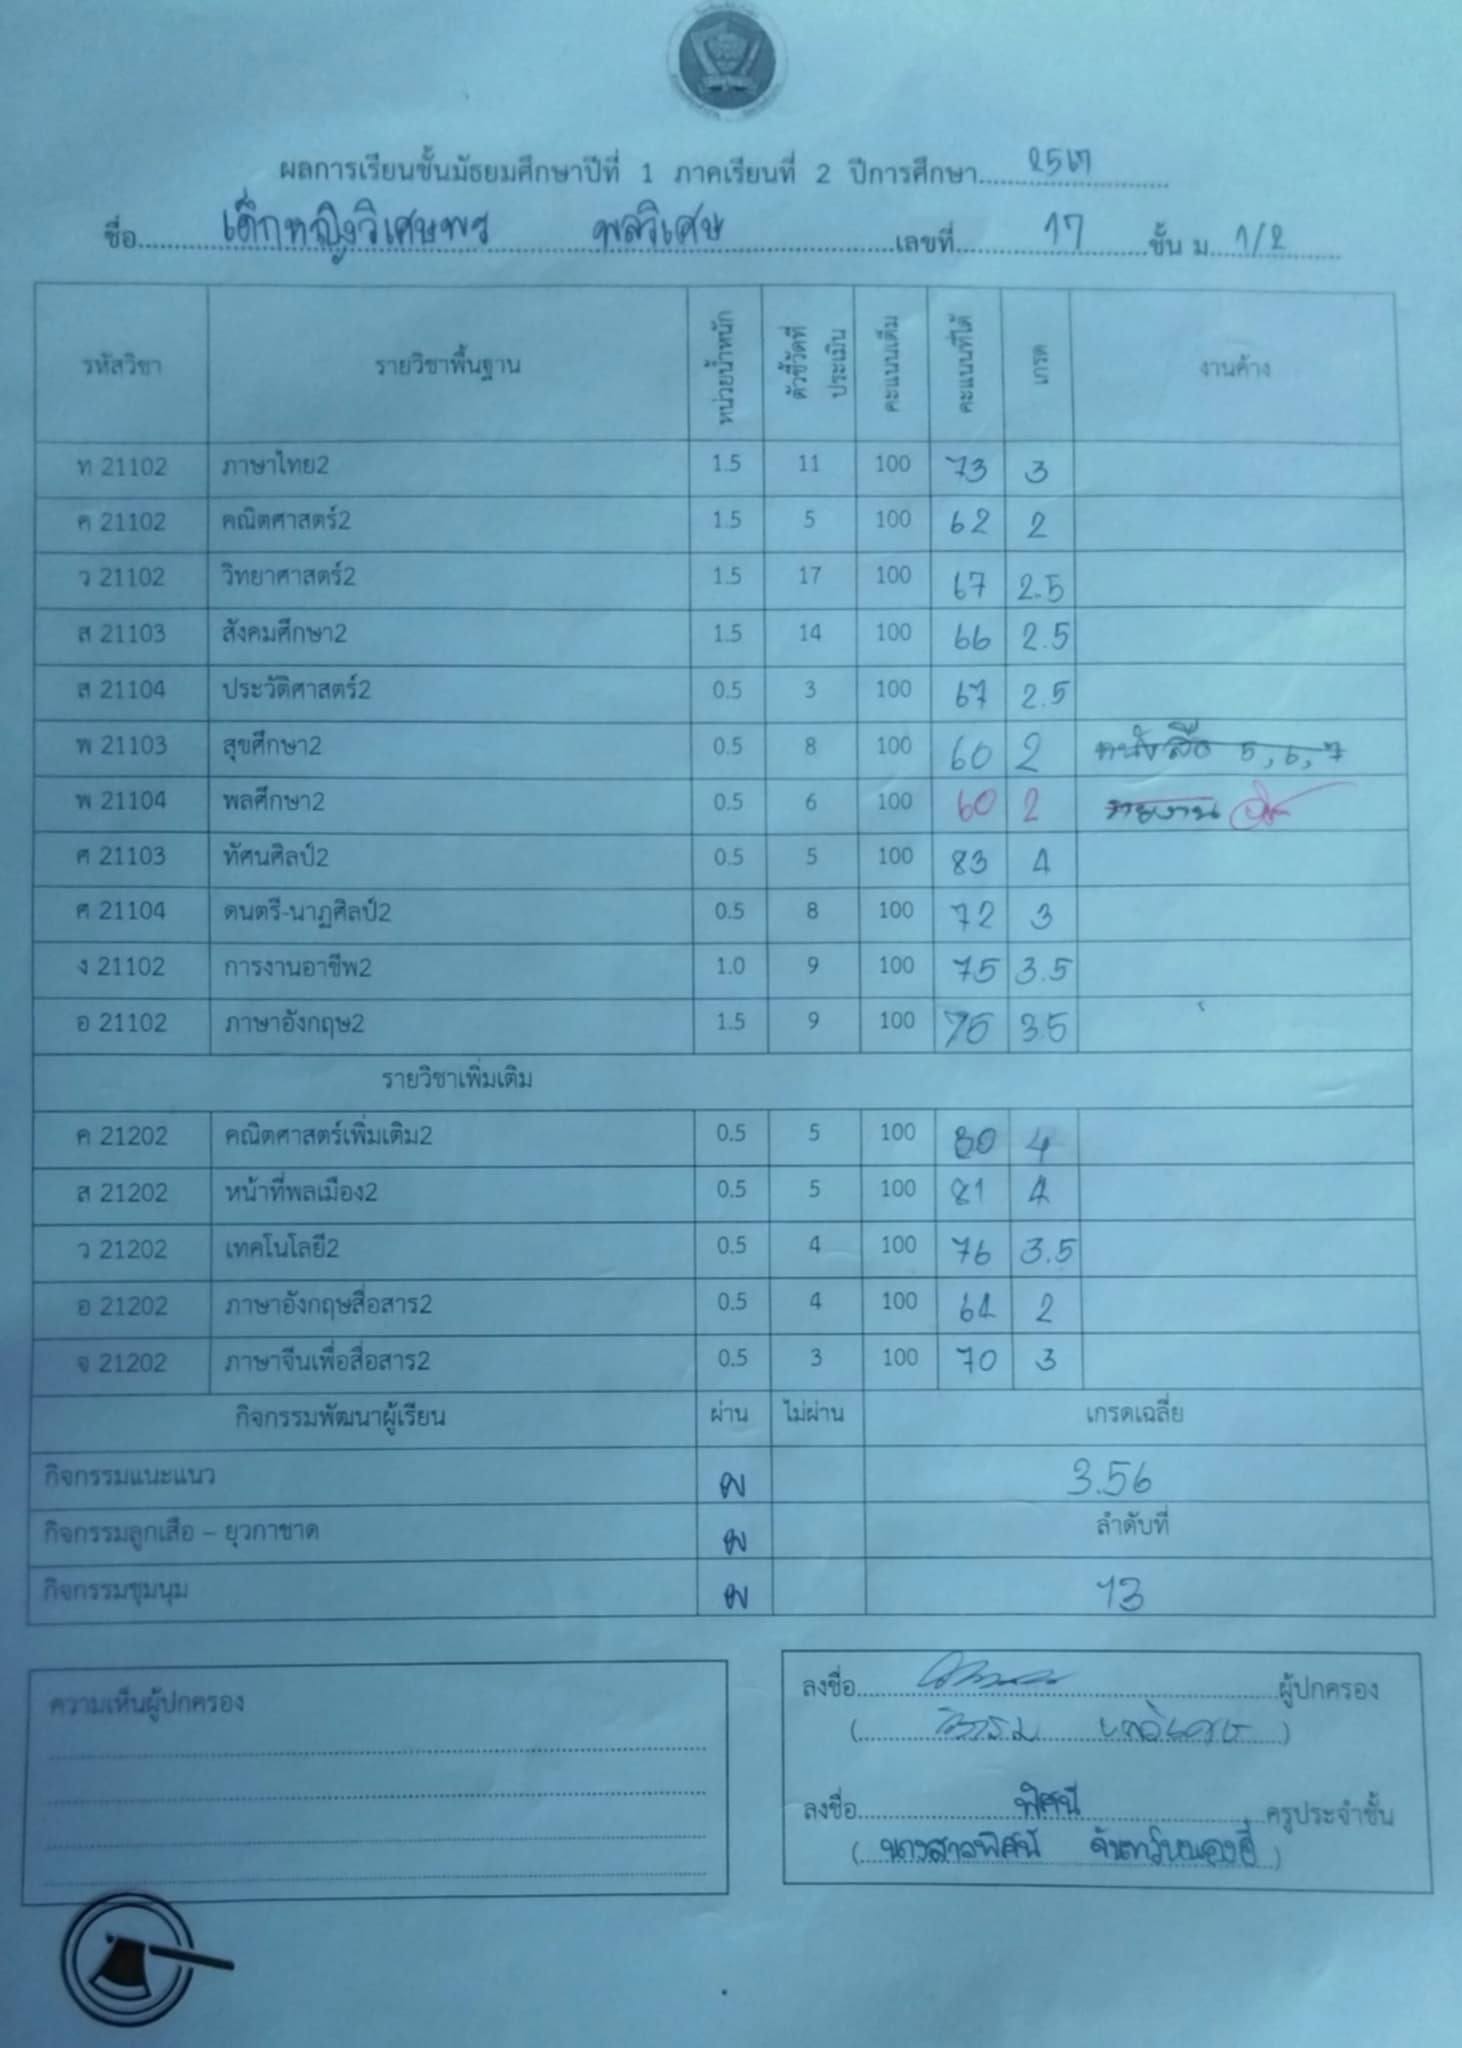 ผลการเรียนชั้นมัธยมศึกษาปีที่ 1 ภาคเรียนที่ 2 ปีการศึกษา 2567
ชื่อ เด็กหญิงวิเศษพร พลวิเศษ เลขที่ 17 ชั้น ม. 1/2
รหัสวิชา รายวิชาพื้นฐาน หน่วยน้ำหนัก ตัวชี้วัดที่ประเมิน คะแนนเต็ม คะแนนที่ได้ เกรด งานค้าง
ท 21102 ภาษาไทย2 1.5 11 100 73 3
ค 21102 คณิตศาสตร์2 1.5 5 100 62 2
ว 21102 วิทยาศาสตร์2 1.5 17 100 67 2.5
ส 21103 สังคมศึกษา2 1.5 14 100 66 2.5
ส 21104 ประวัติศาสตร์2 0.5 3 100 67 2.5
พ 21103 สุขศึกษา2 0.5 8 100 60 2 หนังสือ 5, 6, 7
พ 21104 พลศึกษา2 0.5 6 100 60 2 รายงาน
ศ 21103 ทัศนศิลป์2 0.5 5 100 83 4
ศ 21104 ดนตรี-นาฏศิลป์2 0.5 8 100 72 3
ง 21102 การงานอาชีพ2 1.0 9 100 75 3.5
อ 21102 ภาษาอังกฤษ2 1.5 9 100 75 3.5
รายวิชาเพิ่มเติม
ค 21202 คณิตศาสตร์เพิ่มเติม2 0.5 5 100 80 4
ส 21202 หน้าที่พลเมือง2 0.5 5 100 81 4
ว 21202 เทคโนโลยี2 0.5 4 100 76 3.5
อ 21202 ภาษาอังกฤษสื่อสาร2 0.5 4 100 64 2
จ 21202 ภาษาจีนเพื่อสื่อสาร2 0.5 3 100 70 3
กิจกรรมพัฒนาผู้เรียน ผ่าน ไม่ผ่าน เกรดเฉลี่ย
กิจกรรมแนะแนว ผ 3.56
กิจกรรมลูกเสือ – ยุวกาชาด ผ ลำดับที่
กิจกรรมชุมนุม ผ 13
ความเห็นผู้ปกครอง
ลงชื่อ ผู้ปกครอง
( พลวิเศษ )
ลงชื่อ พิศนี ครูประจำชั้น
( นางสาวพิศนี )